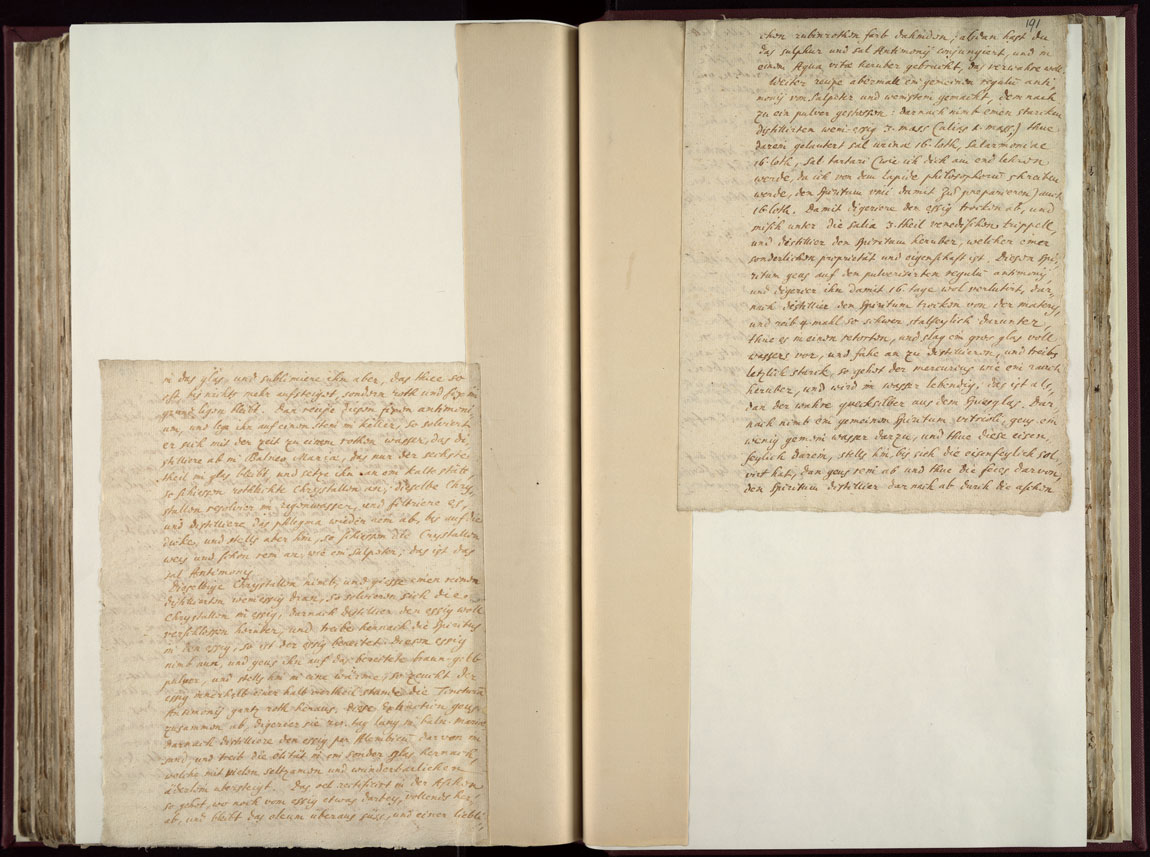 in das glas, und sublimiere ihn aber, das thue so
offt bis nichts mehr aufsteiget, sondern roth und fix im
grund ligen bleibt. Dan neme diesen fixen antimoni
um, und lege ihn auf einen stein in keller, so solvirt
er sich mit der zeit zu einem rothen wasser, das di
stilliere ab in Balneo Mariæ, das nur der sechste
theil im glas bleibt, und setze ihn an ein kalte stätt
so schiessen rothlichte Chrystallen an, dieselbe Chry
stallen resolvier in regenwasser, und filtriere es
und distilliere das phlegma wieder von ab, bis auf die
dicke, und stells aber hin, so schiessen die Crystallen
weis und schon rein an, wie ein salpeter; das ist das
sal Antimonij.
Dieselbige Chrystallen nimb, und giesse einen reinen
distillirten weinessig dran, so solviren sich die
Chrystallen in essig, darnach distillier den essig woll
verschlossen herüber, und treibe hernach die Spiritus
in den essig, so ist der essig bereitet. Diesen essig
nimb nun, und geus ihn auf das bereitete braun-gelb
pulver, und stells hin in eine wärme, so zeucht der
essig innerhalb einer halb viertheil stunde die Tinctura
Antimonij gantz roth heraus, diese Extraction geus
zusammen ab, digerier sie tag lang in baln. mariæ
darnach distilliere den essig per Alembicu darvon im
sand, und treib die ölitüt in ein sonder glas hernach,
welche mit vielen seltzamen und wunderbarlichen
äderlein ubersteigt. Das oel rectificirt in der Aschen
so gehet, wo noch vom essig etwas darbey, vollends her
ab, und bleibt das oleum uberaus suss, und einer liebli
191
chen rubinrothen farb dahinden; alsdan hast du
das sulphur und sal Antimonij conjungiert, und in
einem Aqua vitæ heruber gebracht, das verwahre woll.
Weiter neme abermall ein gemeinen regulu anti,
monij von salpeter und weinstein gemacht, den mach
zu ein pulver gestossen: darnach nimb einen starcken
distillirten wein-essig 3. mass (alias 1. mass.) thue
darein gelautert sal urinæ 16. loth, salarmoniac
16. loth, sal tartari (wie ich dich am end lehren
werde, da ich von dem Lapide philosophoru schreiben
werde, den Spiritum vini damit zu præpareren) auch
16. loth. Damit digeriere den essig trocken ab, und
misch unter die salia 3. theil venedischen trippell,
und distillier den Spiritum heruber, welcher einer
sonderlichen proprietät und eigenschaft ist. Diesen Spi,
ritum geus auf den pulverisirten regulu antimonij
und digerier ihn damit 16. tage wol verlutirt, dar,
nach distillier den Spiritum trocken von der matery,
und reib 4 mahl so schwer stalfeylich darunter,
thue es in einen retorten, und slag ein gros glas voll
wassers vor, und fahe an zu distillieren, und treibs
letzlich starck, so gehet der mercurius wie ein rauch
heruber, und wird in wasser lebendig, das ist als,
dan der wahre quecksilber aus dem spiesglas. Dar
nach nimb ein gemeinen Spiritum vitrioli, geus ein
wenig gemein wasser darzu, und thue diese eisen,
feylich darein, stells hin, bis sich die eisenfeylich sol,
virt hat, dan geus rein ab und thue die feces darvon,
den Spiritum distillier darnach ab durch die aschen